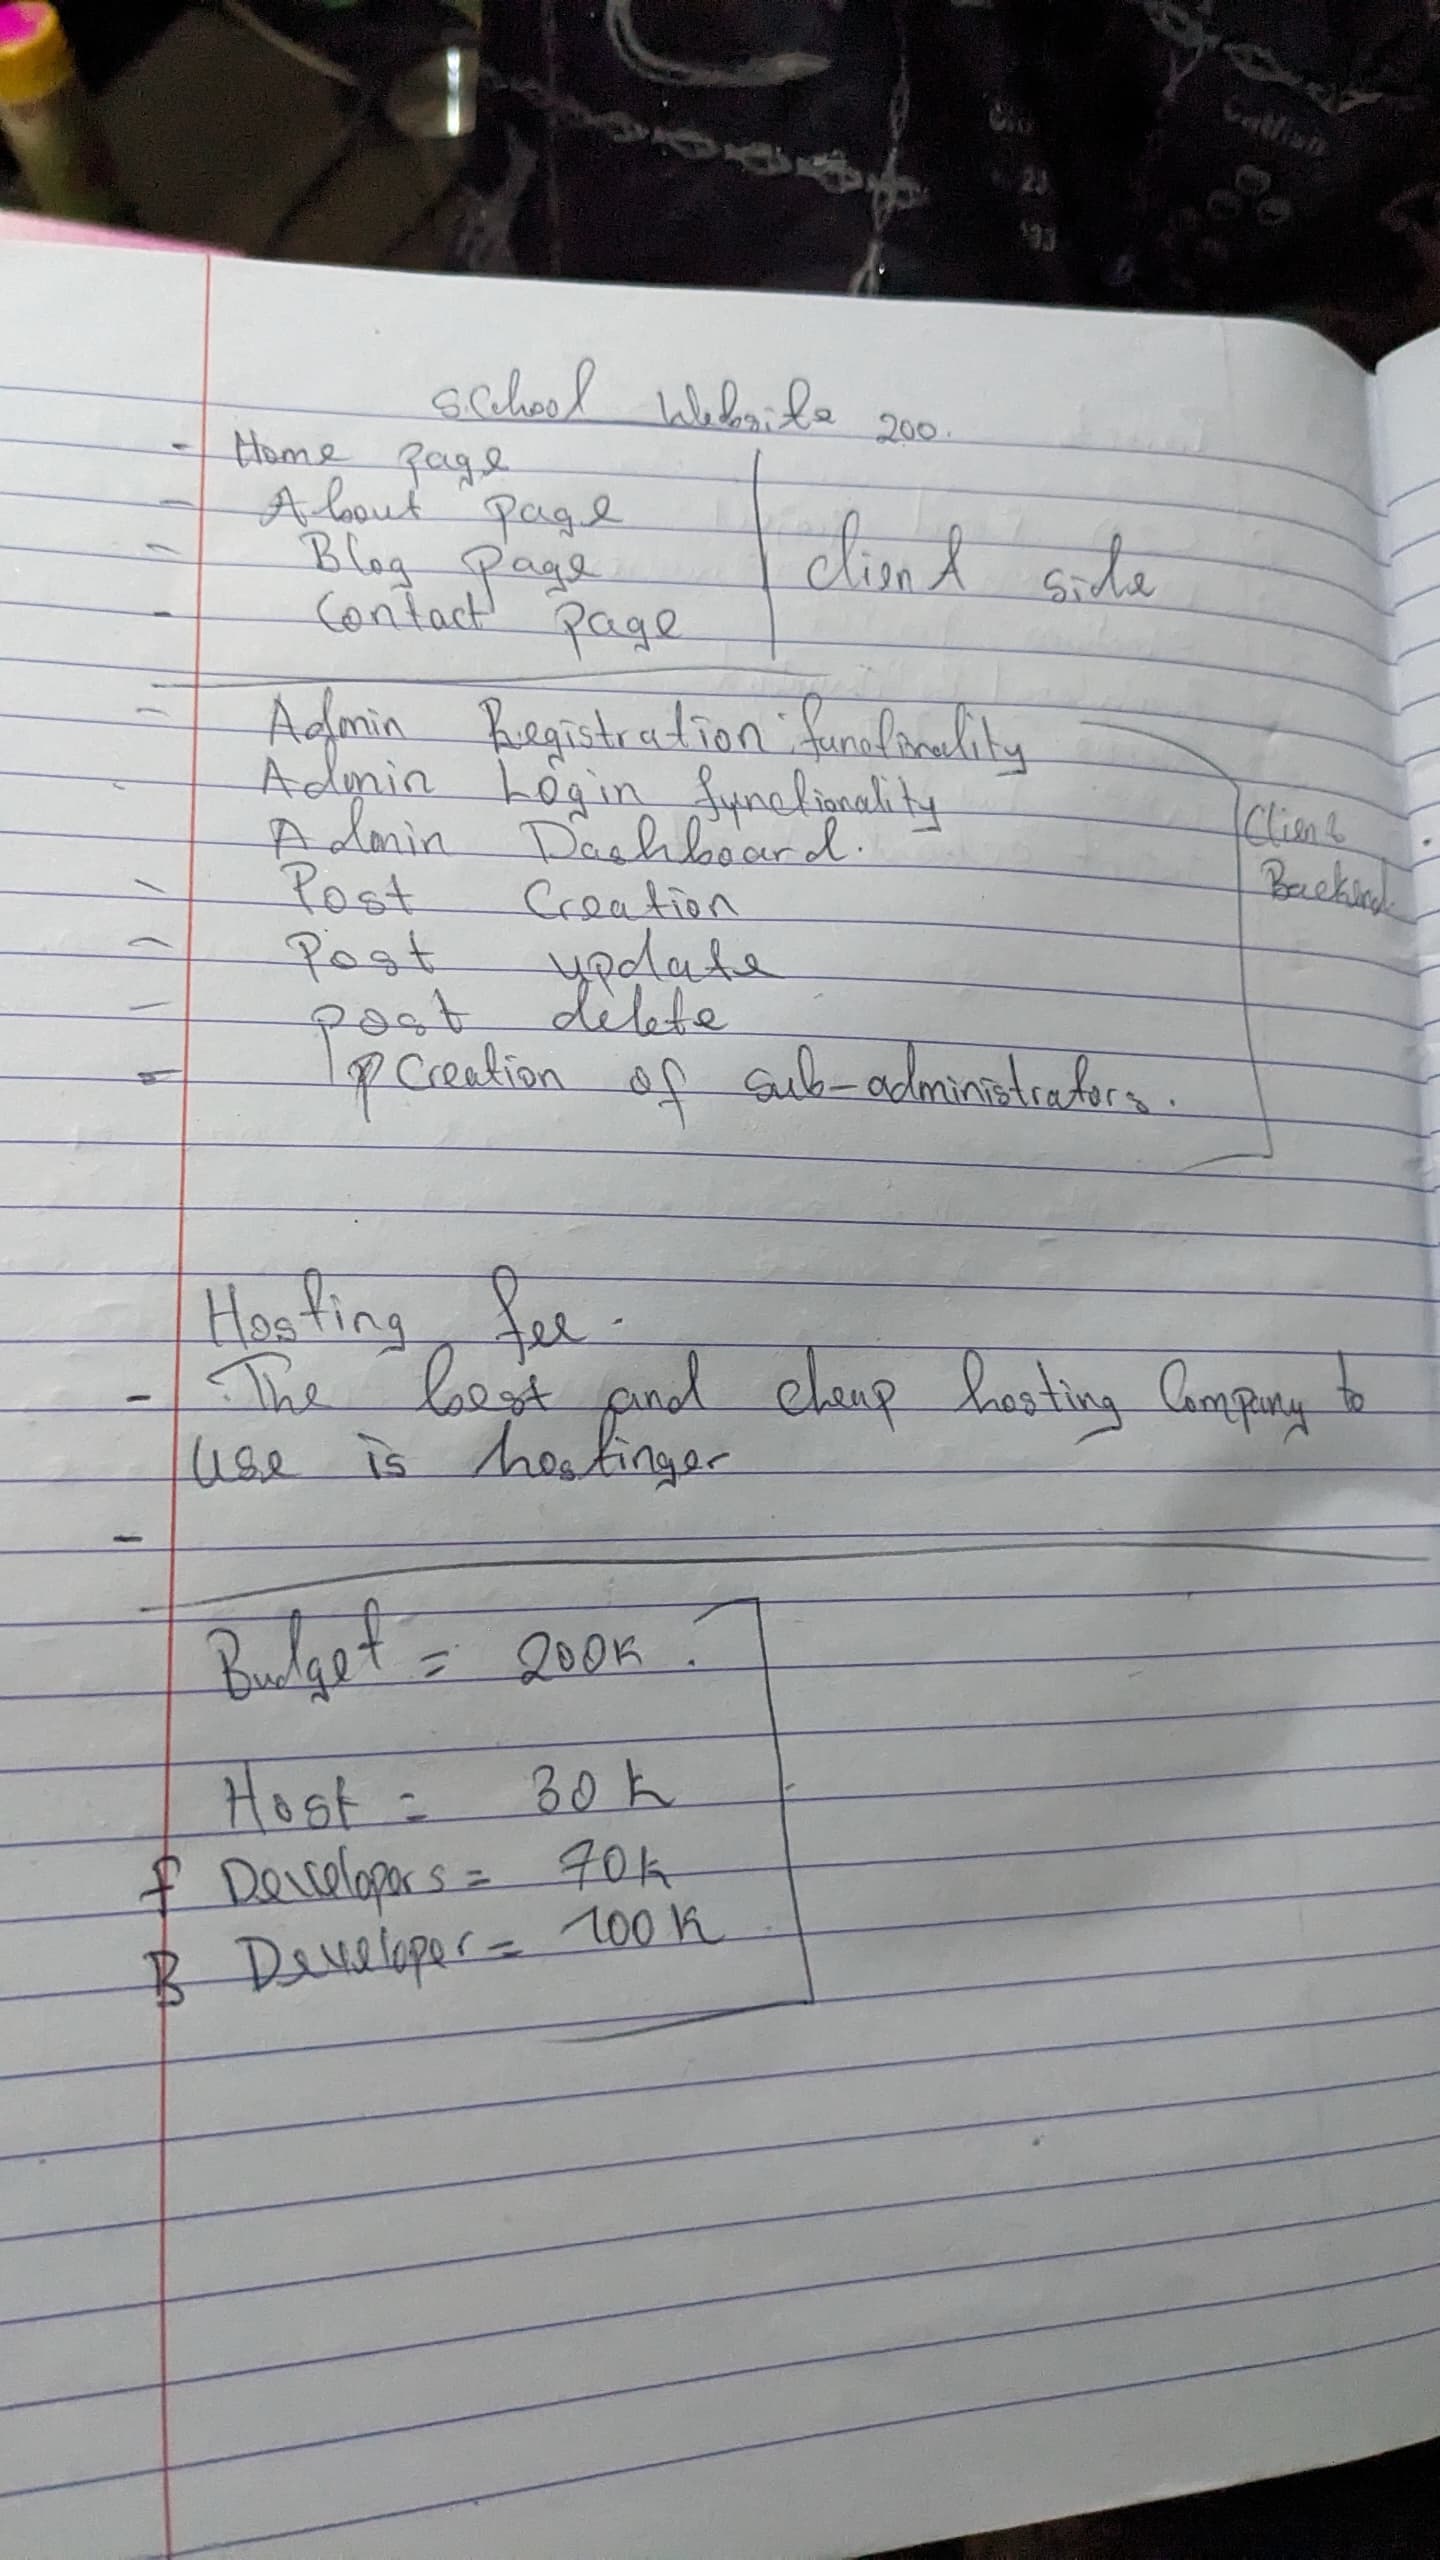 School Website 200.
- Home page
- About page
- Blog page
- Contact page
Client side
- Admin Registration functionality
- Admin Login functionality
Admin Dashboard.
- Post Creation
- Post update
- post delete
- Creation of sub-administrators.
Client
Backend
Hosting fee.
- The best and cheap hosting Company to
use is hostinger
-
Budget = 200k.
Host = 30k
f Developers = 70k
B Developer = 100k